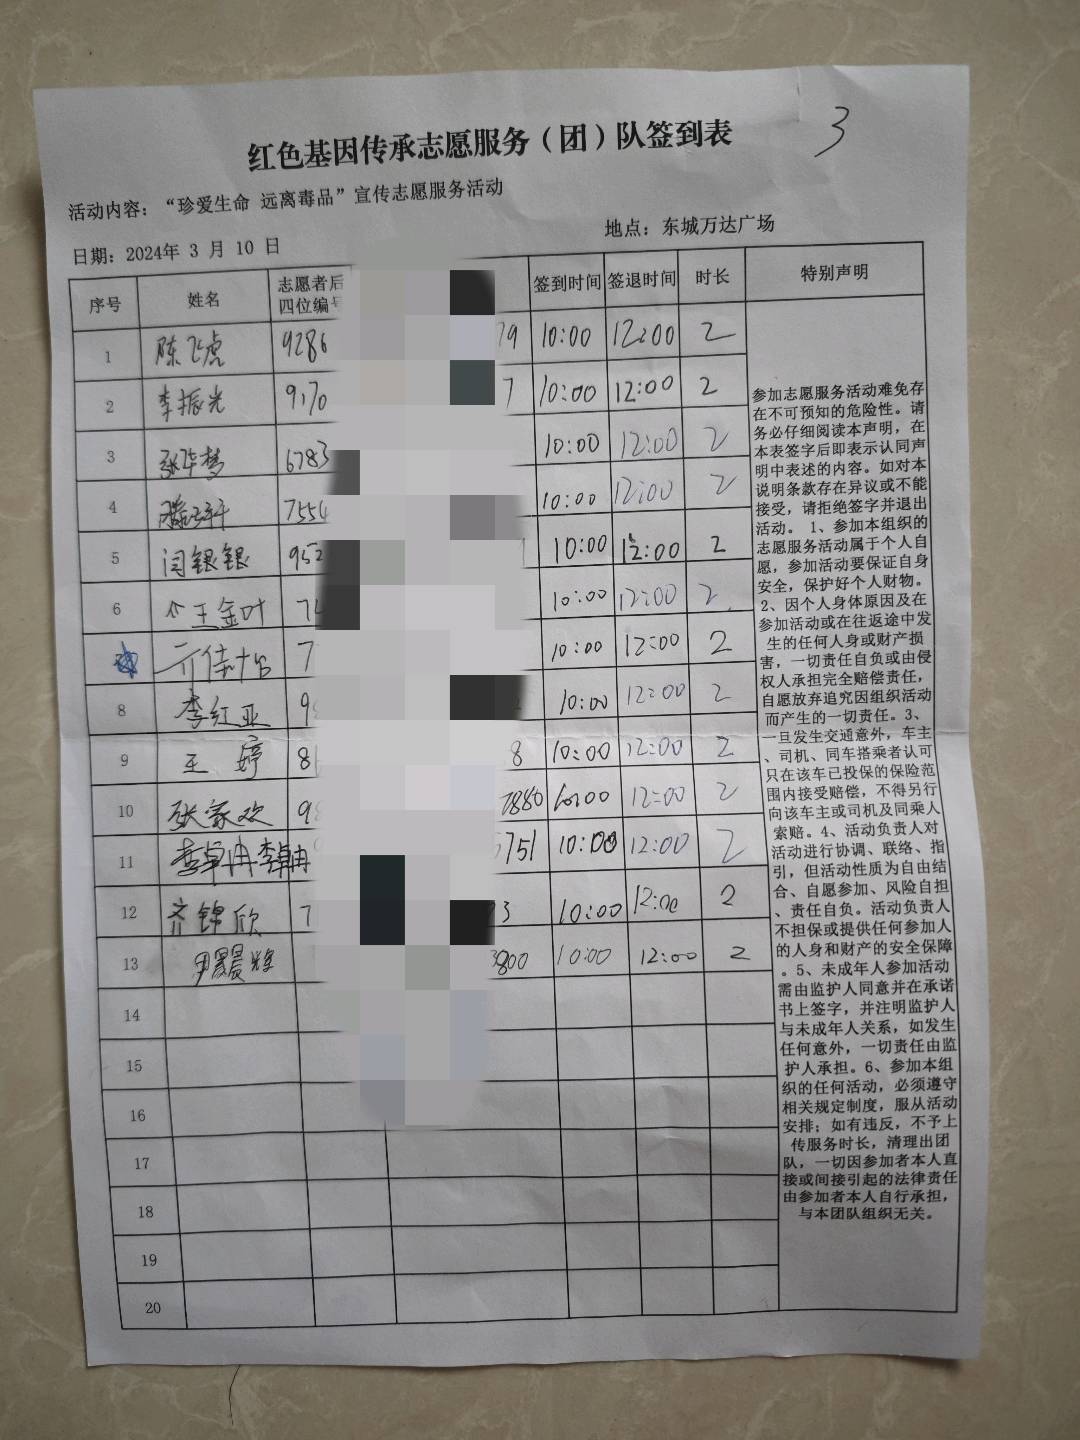 3
红色基因传承志愿服务（团）队签到表
活动内容：“珍爱生命 远离毒品”宣传志愿服务活动
日期：2024年 3 月 10 日
地点：东城万达广场
序号 姓名 志愿者后四位编号 签到时间 签退时间 时长 特别声明
1 陈飞虎 9286 79 10:00 12:00 2
2 李振光 9170 7 10:00 12:00 2
3 张华梦 6783 10:00 12:00 2
4 7554 10:00 12:00 2
5 闫银银 952 10:00 12:00 2
6 王金叶 74 10:00 12:00 2
7 10:00 12:00 2
8 李红亚 9 10:00 12:00 2
9 王婷 8 8 10:00 12:00 2
10 张家欢 9 7880 10:00 12:00 2
11 李卓冉 李卓冉 5751 10:00 12:00 2
12 齐锦欣 7 3 10:00 12:00 2
13 尹晨辉 3800 10:00 12:00 2
14
15
16
17
18
19
20
参加志愿服务活动难免存
在不可预知的危险性。请
务必仔细阅读本声明，在
本表签字后即表示认同声
明中表述的内容。如对本
说明条款存在异议或不能
接受，请拒绝签字并退出
活动。 1、参加本组织的
志愿服务活动属于个人自
愿，参加活动要保证自身
安全，保护好个人财物。
2、因个人身体原因及在
参加活动或在往返途中发
生的任何人身或财产损
害，一切责任自负或由侵
权人承担完全赔偿责任，
自愿放弃追究因组织活动
而产生的一切责任。3、
一旦发生交通意外，车主
、司机、同车搭乘者认可
只在该车已投保的保险范
围内接受赔偿，不得另行
向该车主或司机及同乘人
索赔。4、活动负责人对
活动进行协调、联络、指
引，但活动性质为自由结
合、自愿参加、风险自担
、责任自负。活动负责人
不担保或提供任何参加人
的人身和财产的安全保障
。5、未成年人参加活动
需由监护人同意并在承诺
书上签字，并注明监护人
与未成年人关系，如发生
任何意外，一切责任由监
护人承担。6、参加本组
织的任何活动，必须遵守
相关规定制度，服从活动
安排；如有违反，不予上
传服务时长，清理出团
队，一切因参加者本人直
接或间接引起的法律责任
由参加者本人自行承担，
与本团队组织无关。